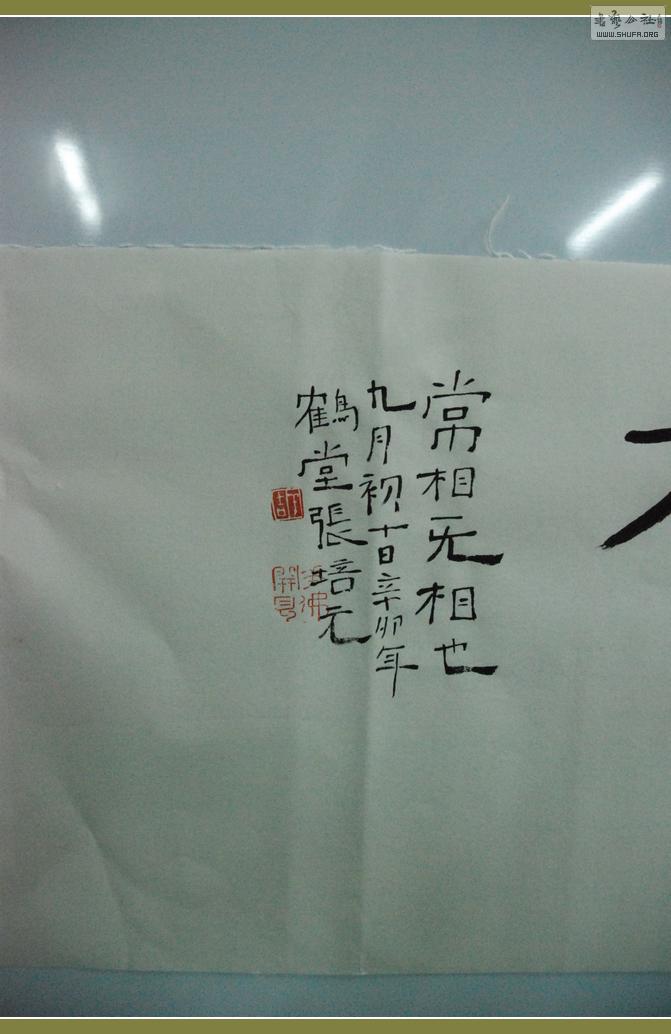 常相无相也
九月初十日辛卯年
鶴堂張培元
書艺公社
WWW.SHUFA.ORG